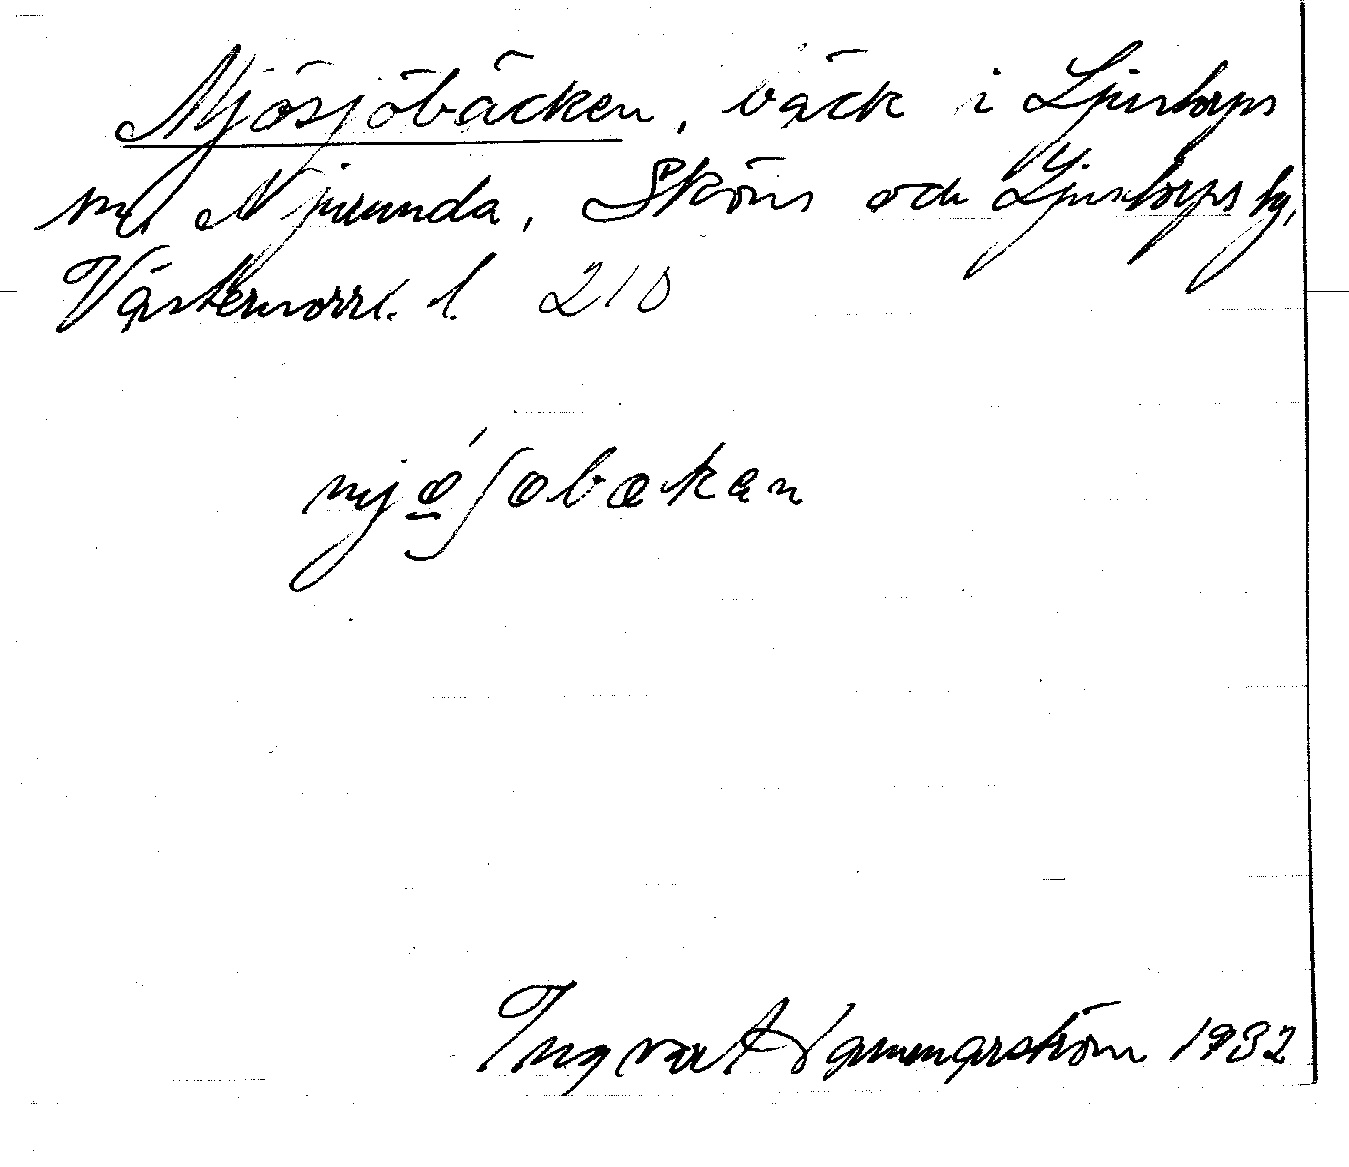 Njösjöbäcken, bäck i Ljustorps
sn, Njurunda, Sköns och Ljustorps tg,
Västernorrl. l. 210
njǿʃøbækæn
Ingvar Hammarström 1932